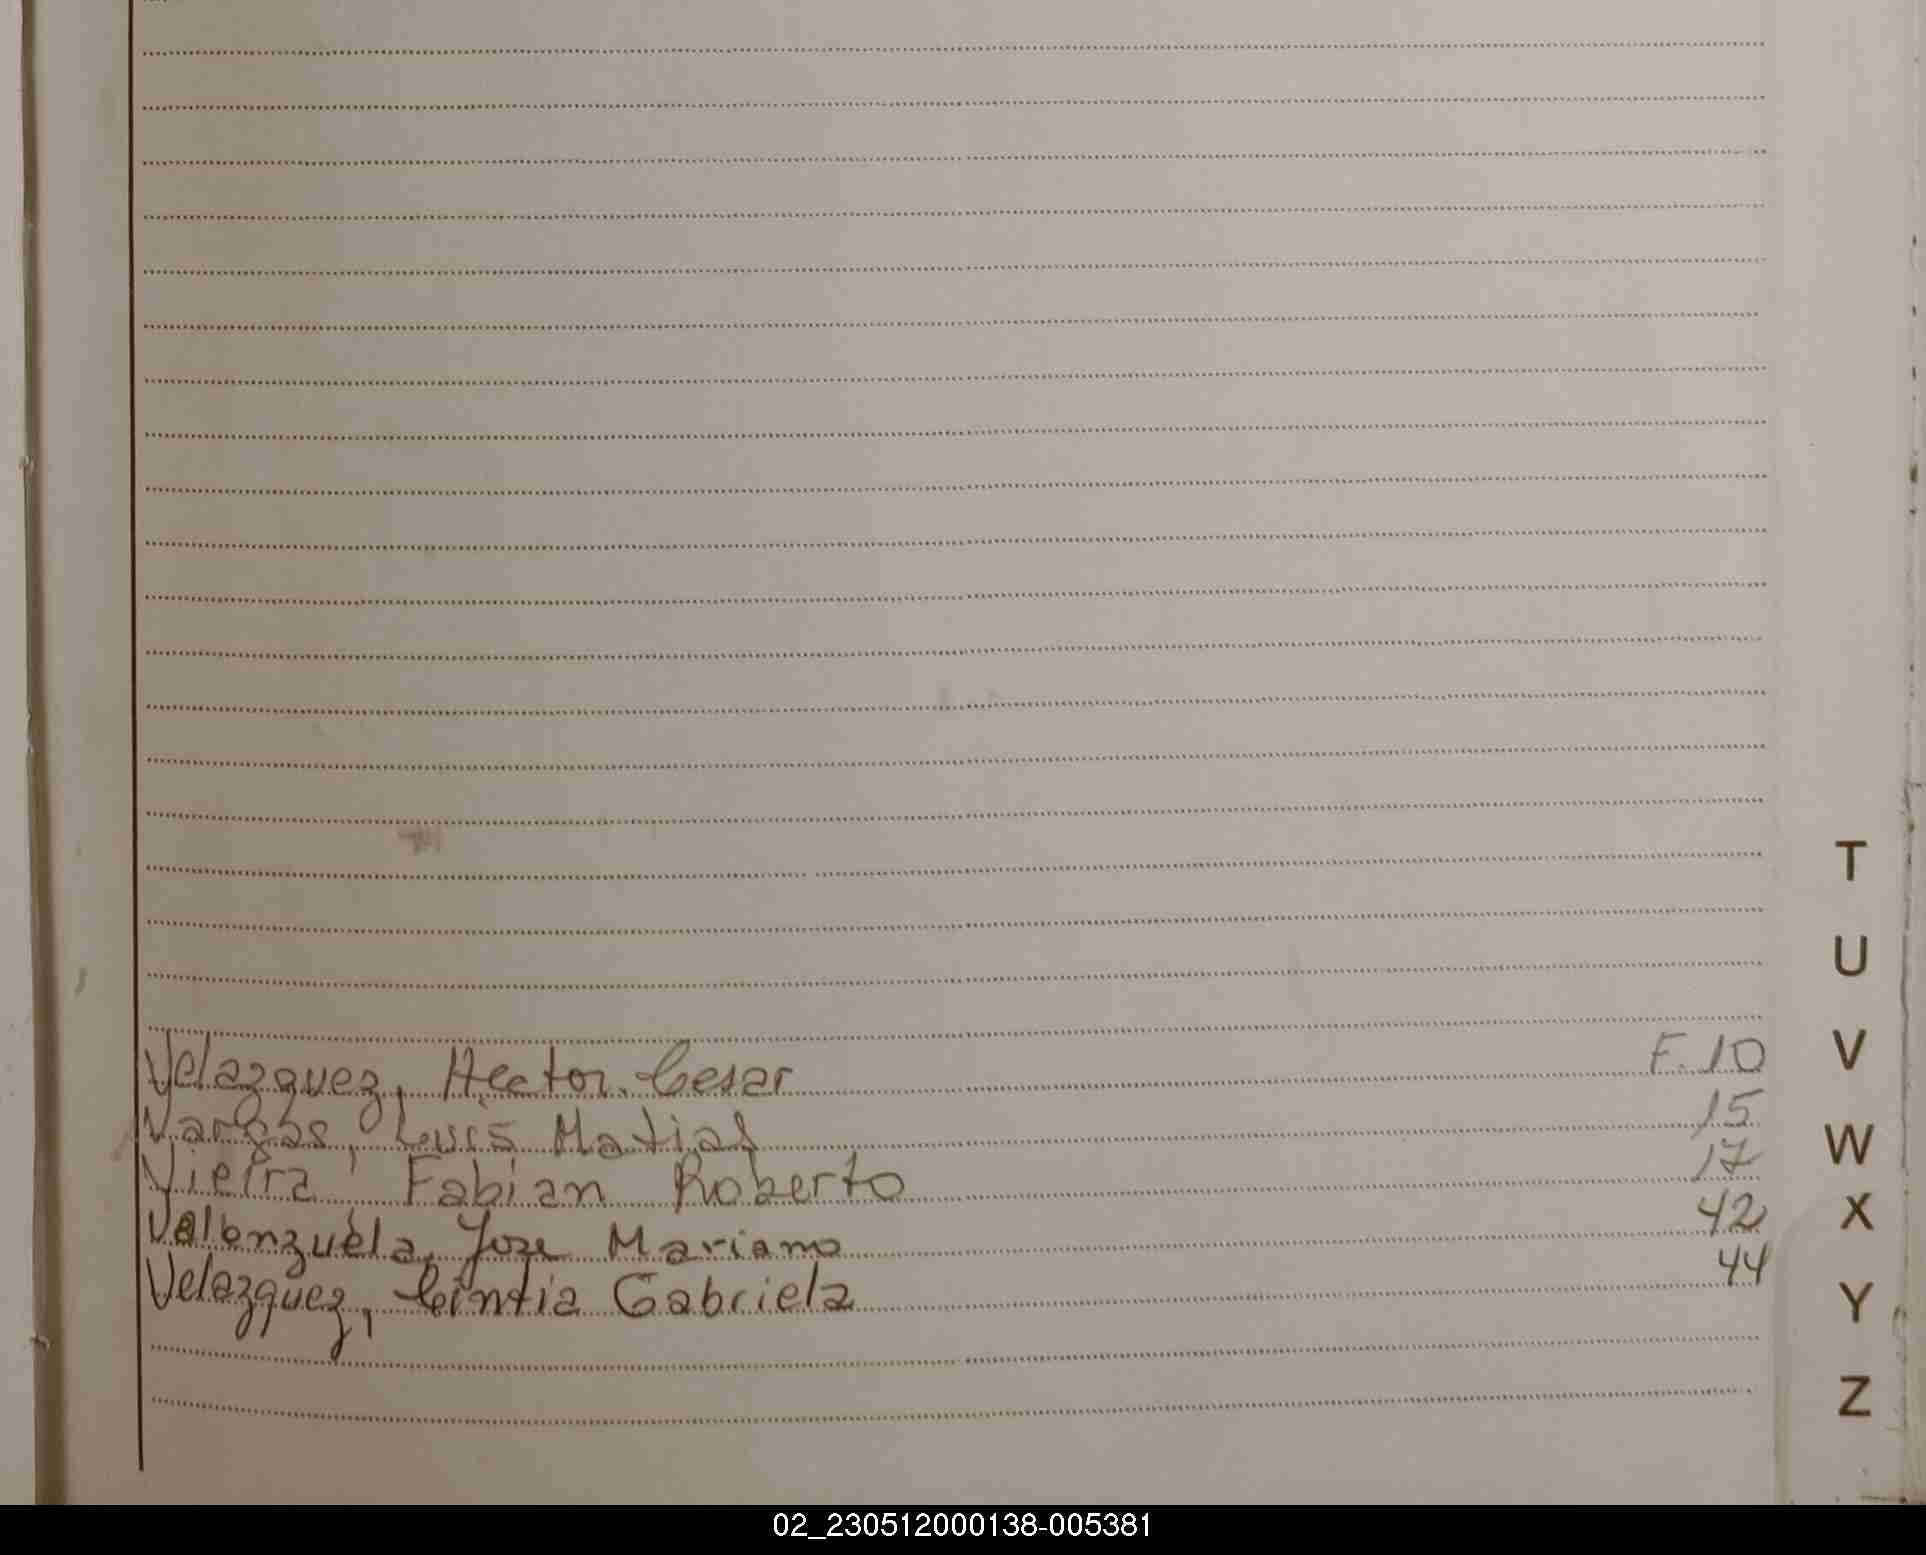 Velazquez, Hector Cesar F. 10
Vargas, Luis Matias 15
Vieira Fabian Roberto 17
Valenzuela, Jose Mariano 42
Velazquez, Cintia Gabriela 44
T
U
V
W
X
Y
Z
02_230512000138-005381